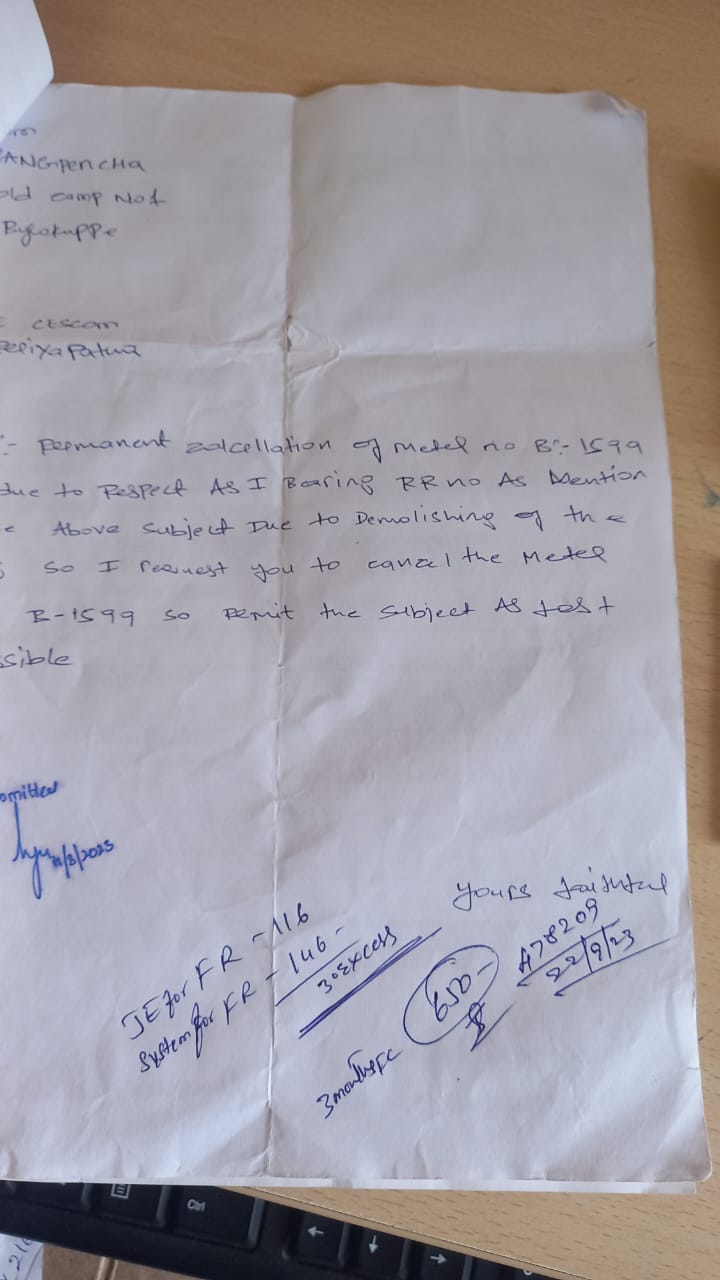 ANGPENCHA
old camp No1
Bylakuppe
CESCOM
Perixapatna
:- Permanent calcellation of meter no B:- 1599
due to Respect As I Bearing RR no As Mention
Above subject Due to Demolishing of the
so I request you to cancel the Meter
B-1599 so Remit the subject As fast
ssible
omitted
11/8/2023
yours faithful
JE for FR - 116
System for FR - 146 -
30 Excess
3 months FC
650-
A78209
22/9/23
Ctrl